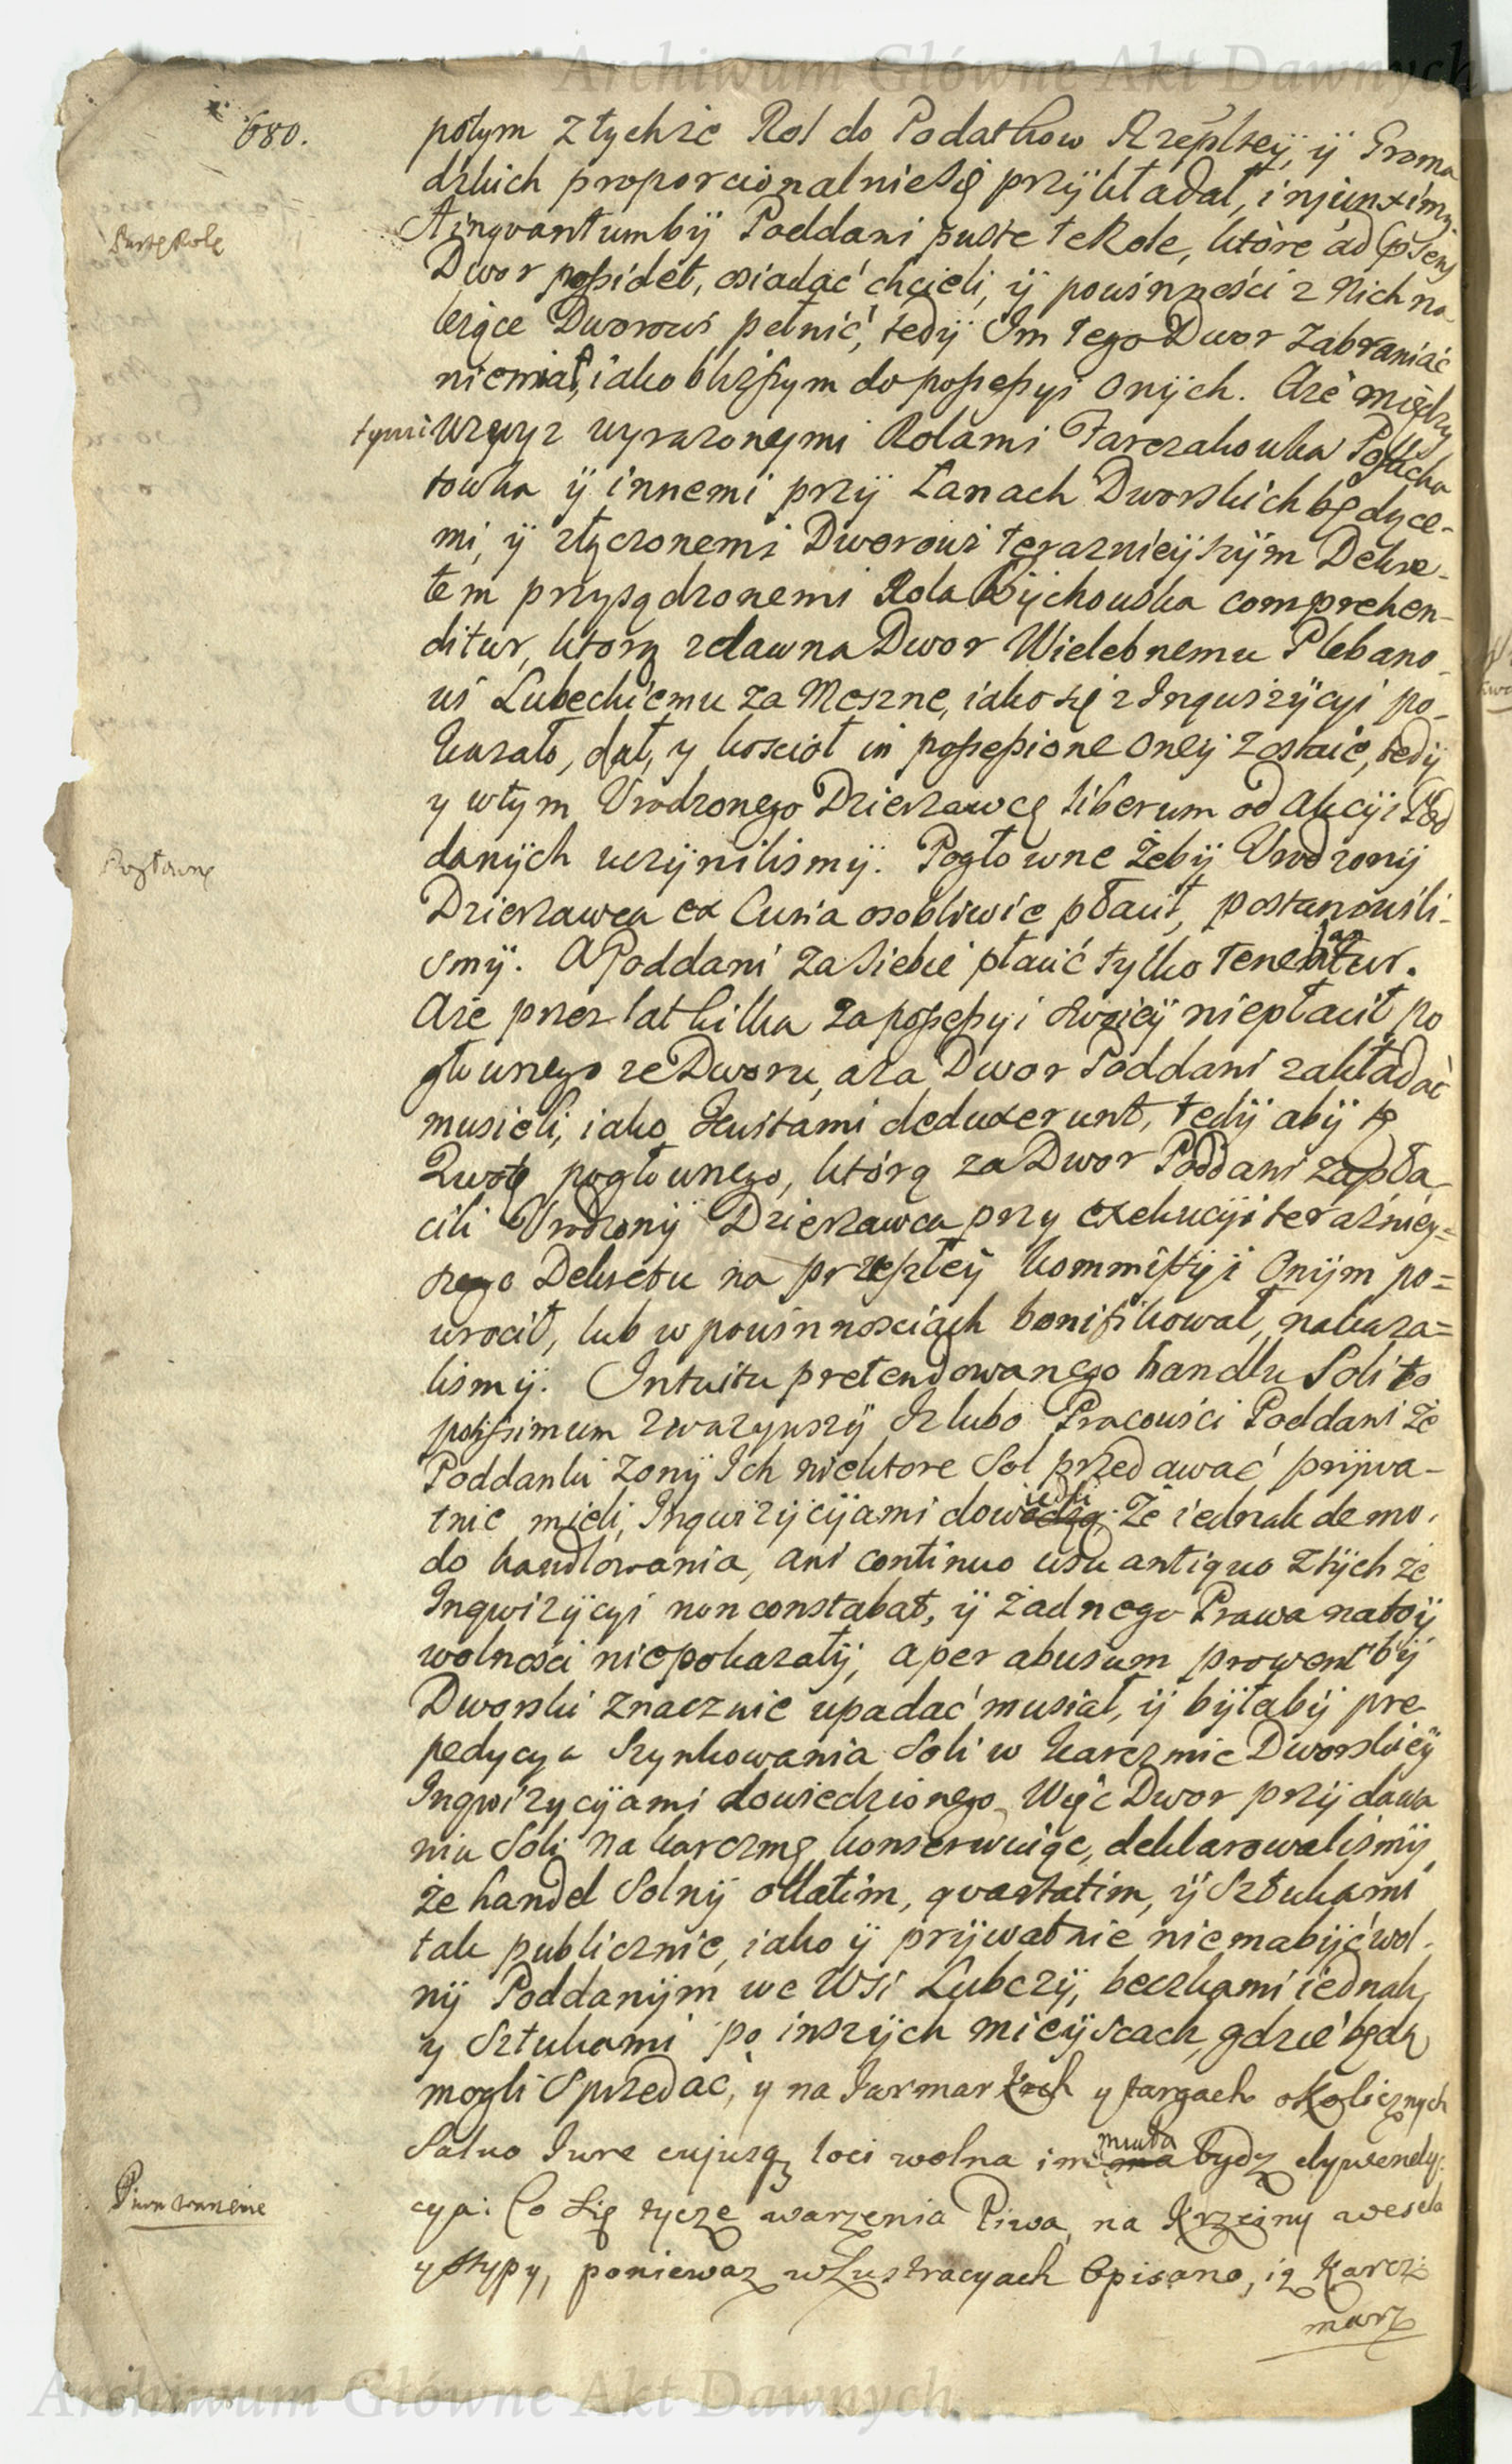 Archiwum Główne Akt Dawnych
680.
potym z tychże Rol do Podatkow Rzepltey, ÿ Groma
dzkich proporcionalnie się przÿkładał, injunximus
Puste Role
A inqvantum bÿ Poddani puste te Role, ktòre ad
Dwor possidet, osiadać chcieli, ÿ powinności z nich na
leżące Dworowi pełnić, tedÿ Im tego Dwor zabraniać
niemiał, iako bliższym do possessyi onÿch. Aże między
tymi wzwyz wyrazonymi Rolami Farczakowka
towka ÿ innemi przÿ Łanach Dworskich będące-
mi, ÿ złączonemi Dworowi teraznieÿszÿm Dekre-
tem przysądzonemi Rola Bÿchowska comprehen-
ditur, ktorą zdawna Dwor Wielebnemu Plebano-
wi Lubeckiemu za Meszne, iako się z Inquizÿcyi po-
kazało, dał, y kosciół in possessione oneÿ zostaie, tedÿ
y wtym Urodzonego Dzierzawcę liberum od Akcÿi Pod
danÿch uczÿnilismÿ. Pogłowne żebÿ Urodzonÿ
Pogłowne
Dzierzawca ex Curia osobliwie płacił, postanowili-
smÿ. A Poddani za siebie płacić tylko tenebantur.
Aże przez lat kilka za possessyi swoieÿ niepłacił po
głownego ze Dworu, a za Dwor Poddani zakładać
musieli, iako Kwitami deduxerunt, tedÿ abÿ tę
Qwotę pogłownego, ktòrą za Dwor Poddani zapła-
cili Urodzonÿ Dzierzawca przy exekucÿi teraźniey=
szego Dekretu na przeszłeÿ kommissÿi Onÿm po=
wrocił, lub w powinnosciach bonifikował, nakaza=
lismÿ. Intuitu pretendowanego handlu Soli to
potissimum zwazywszÿ Iz lubo Pracowici Poddani że
Poddanki zonÿ Ich niektore Sol przedawać prÿwa-
tnie mieli, Inqwizÿcÿami dowiedli. Że iednak de mo-
do handlowania, ani continuo usu antiquo ztÿch że
Inqwizÿcyi non constabat, ÿ żadnego Prawa na toÿ
wolnosci niepokazałÿ, a per abusum prowent bÿ
Dworski znacznie upadać musiał, ÿ bÿłabÿ pre-
pedycya szynkowania Soli w karczmie Dworskieÿ
Inqwizycÿami dowiedzionego, Więc Dwor przÿ dawa
niu Soli na karczmę konserwuiąc, deklarowalismÿ
że handel Solnÿ ollatim, qvartatim, ÿ Sztukami
tak publicznie, iako ÿ prÿwatnie niema bÿć wol-
nÿ Poddanÿm we Wsi Lubczÿ, beczkami iednak
y Sztukami po inszÿch mieÿscach, gdzie będą
mogli Sprzedać, y na Iarmarkach y targach okolicznych
Salvo Iure cujusq; loci wolna im miała bydz dywendy-
cya: Co się tycze warzenia Piwa, na Krzciny wesela
Piwa warzenie
y stypy, poniewaz w Lustracyach Opisano, iz Karcz-
marz
Archiwum Główne Akt Dawnych